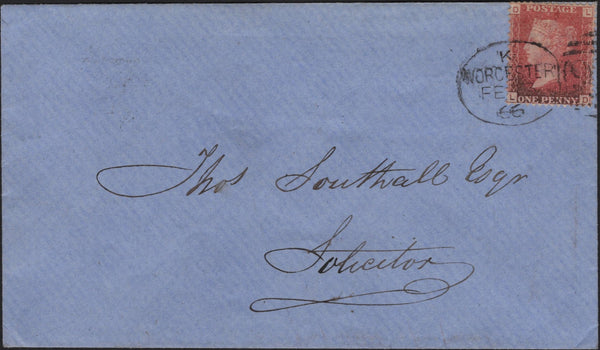 D POSTAGE L
K
WORCESTER
FE
66
L ONE PENNY D
Thos Southall Esqr
Solicitor